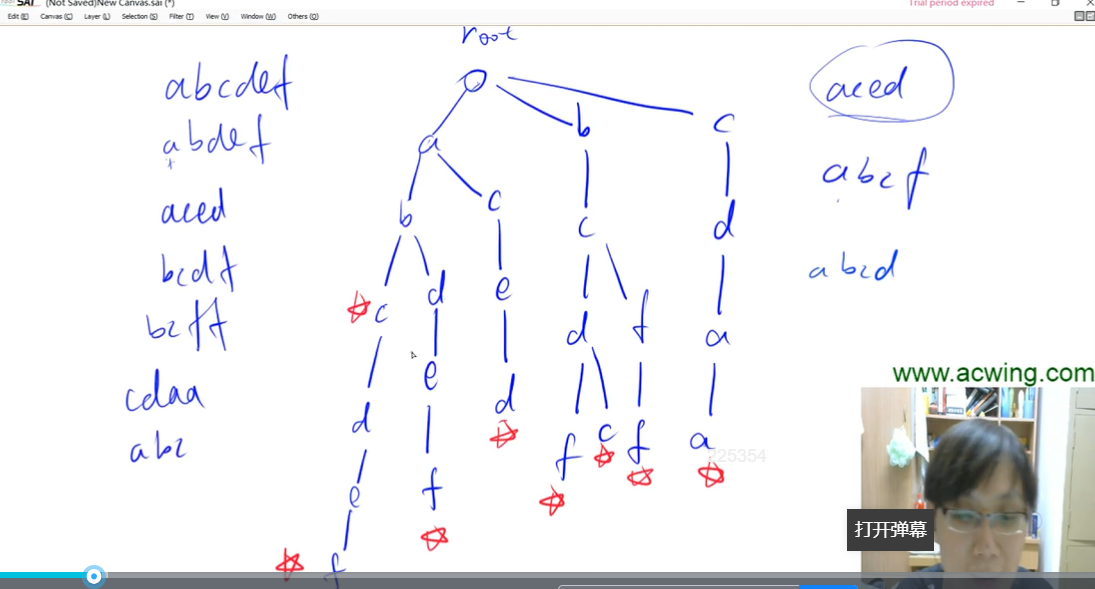 SAI (Not Saved)New Canvas.sai (*)
Trial period expired
Edit (E) Canvas (C) Layer (L) Selection (S) Filter (T) View (V) Window (W) Others (O)
root
abcdef
abdef
aced
bcdf
bcff
cdaa
abc
a
b
c
b
c
c
d
c
d
e
c
d
d
f
a
d
e
d
f
c
f
a
e
f
f
aced
abcf
abcd
www.acwing.com
725354
打开弹幕